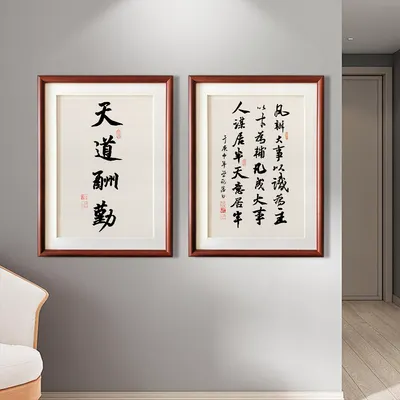 天道酬勤
凡辦大事以識為主
以才為輔凡成大事
人謀居半天意居半